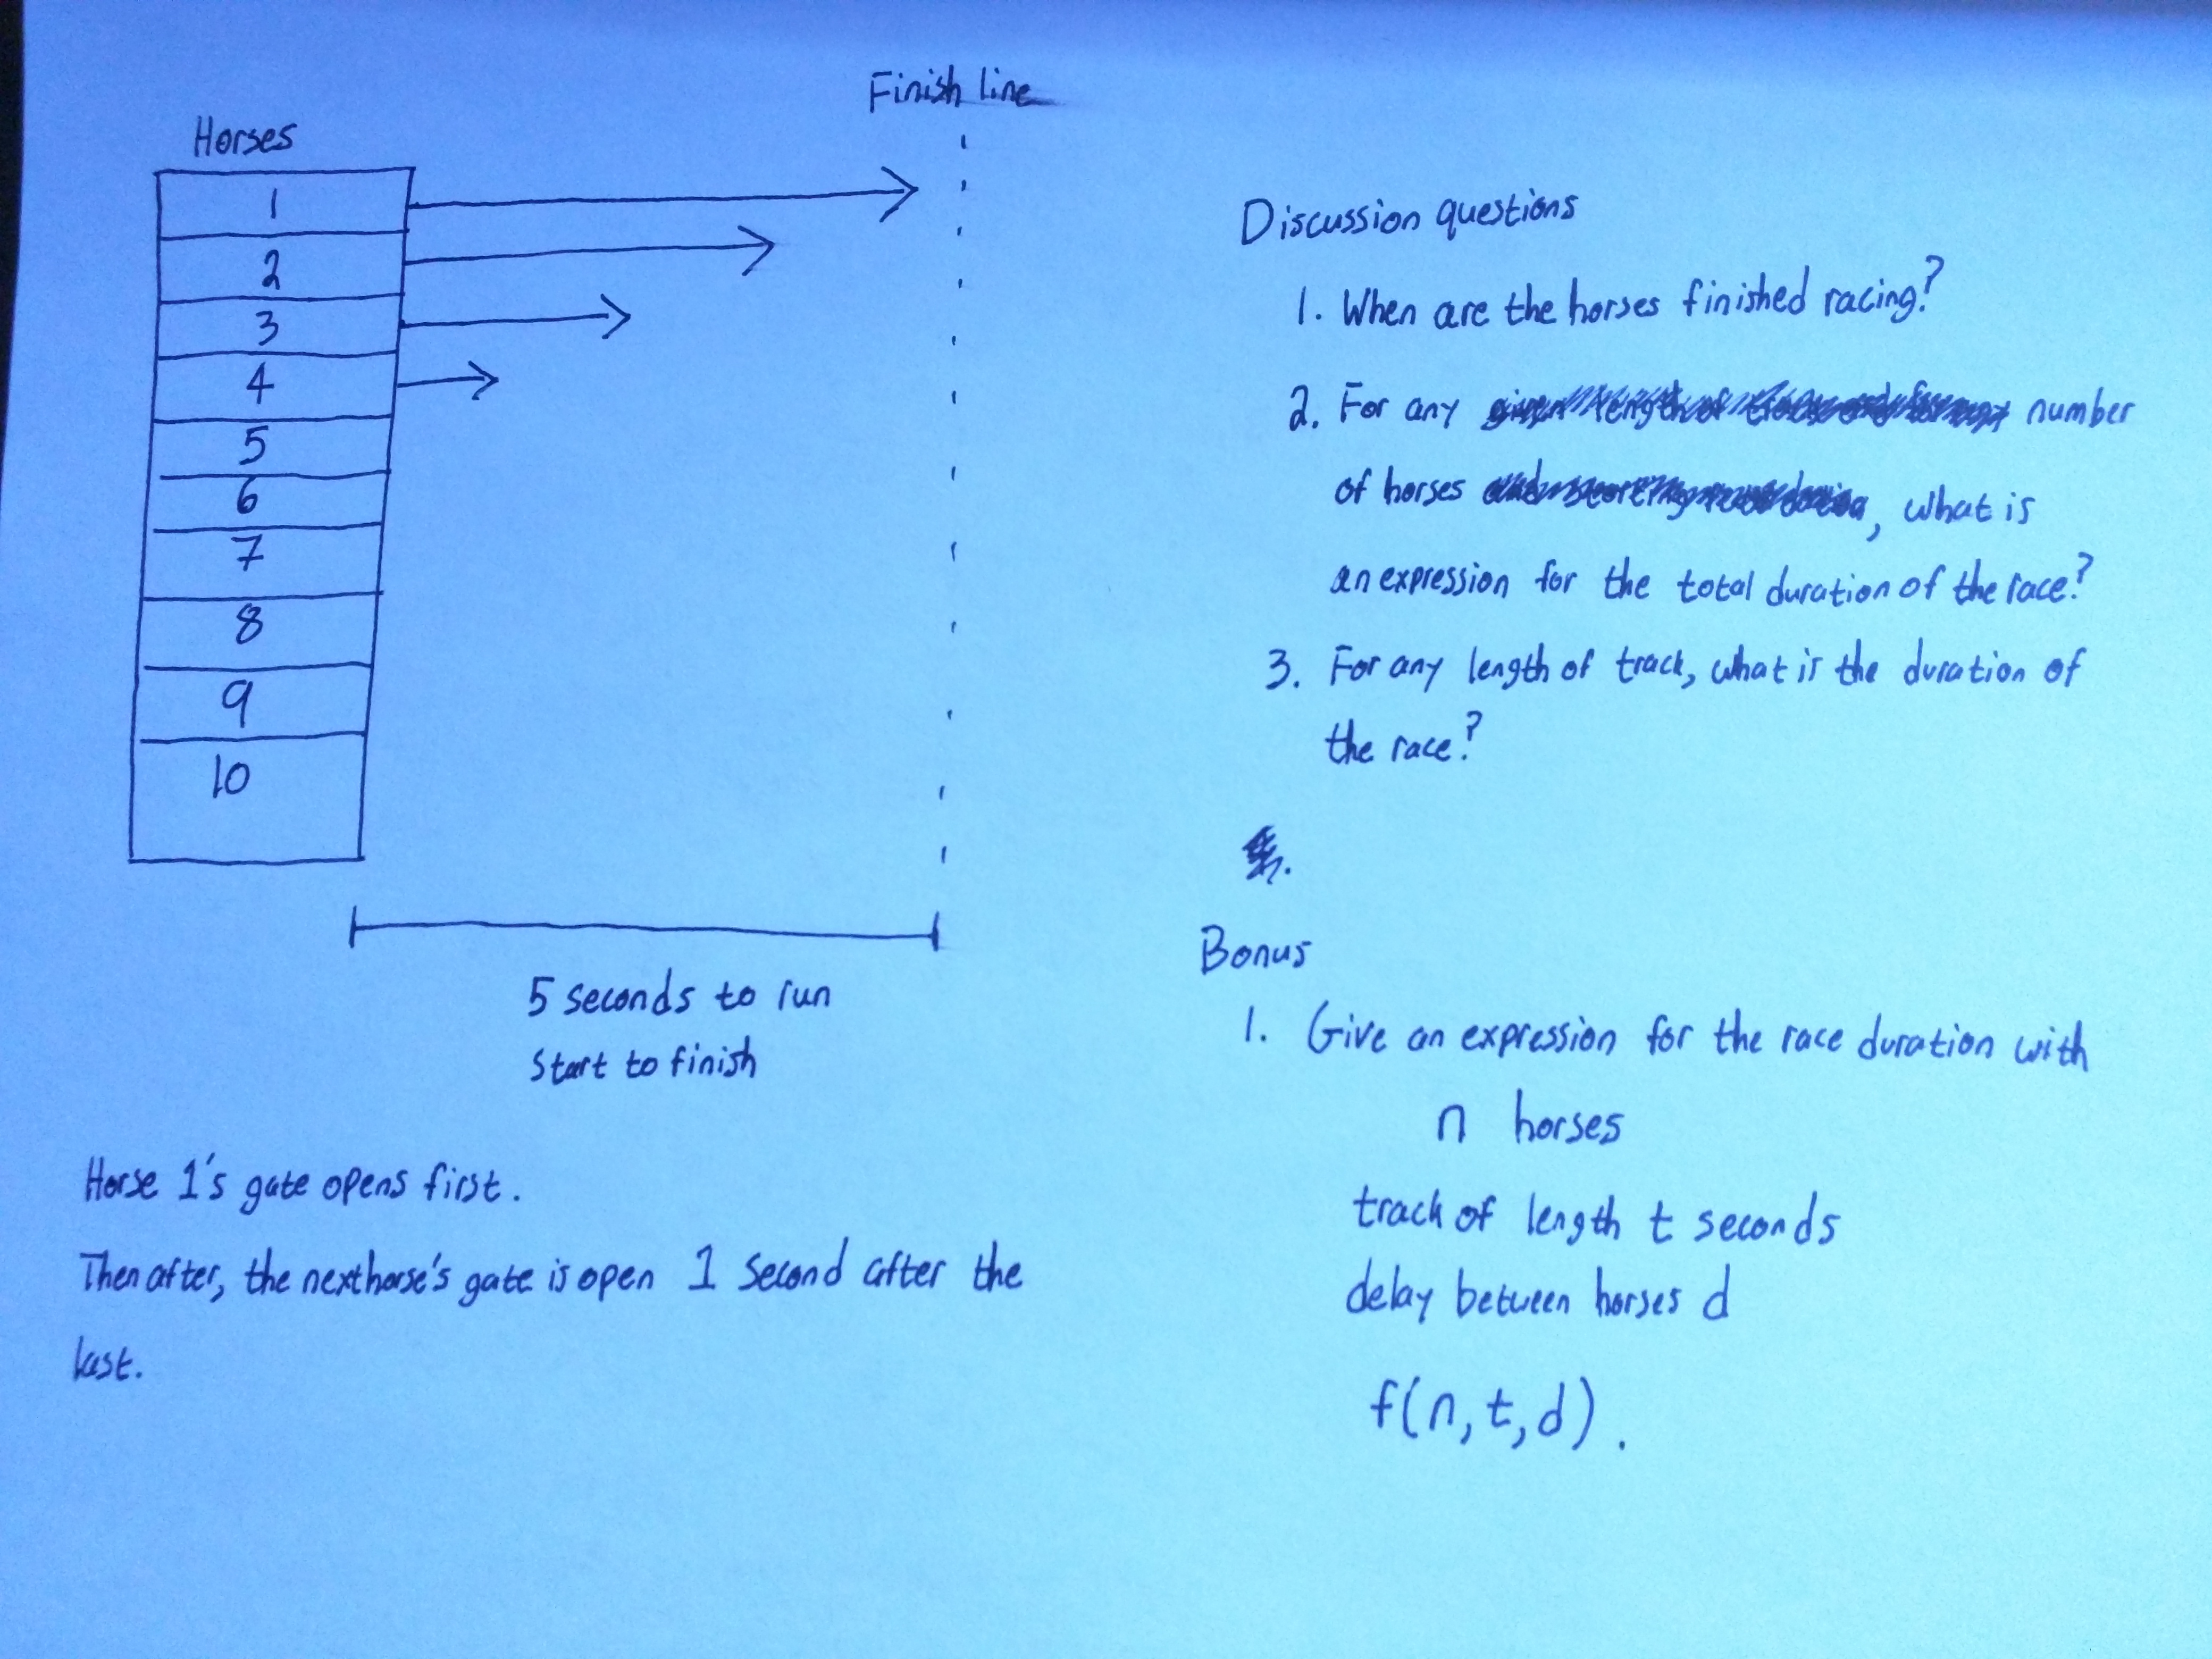 Horses
Finish line
1
2
3
4
5
6
7
8
9
10
5 seconds to run
Start to finish
Horse 1's gate opens first.
Then after, the next horse's gate is open 1 second after the
last.
Discussion questions
1. When are the horses finished racing?
2. For any number
of horses , what is
an expression for the total duration of the race?
3. For any length of track, what is the duration of
the race?
Bonus
1. Give an expression for the race duration with
n horses
track of length t seconds
delay between horses d
f(n,t,d).